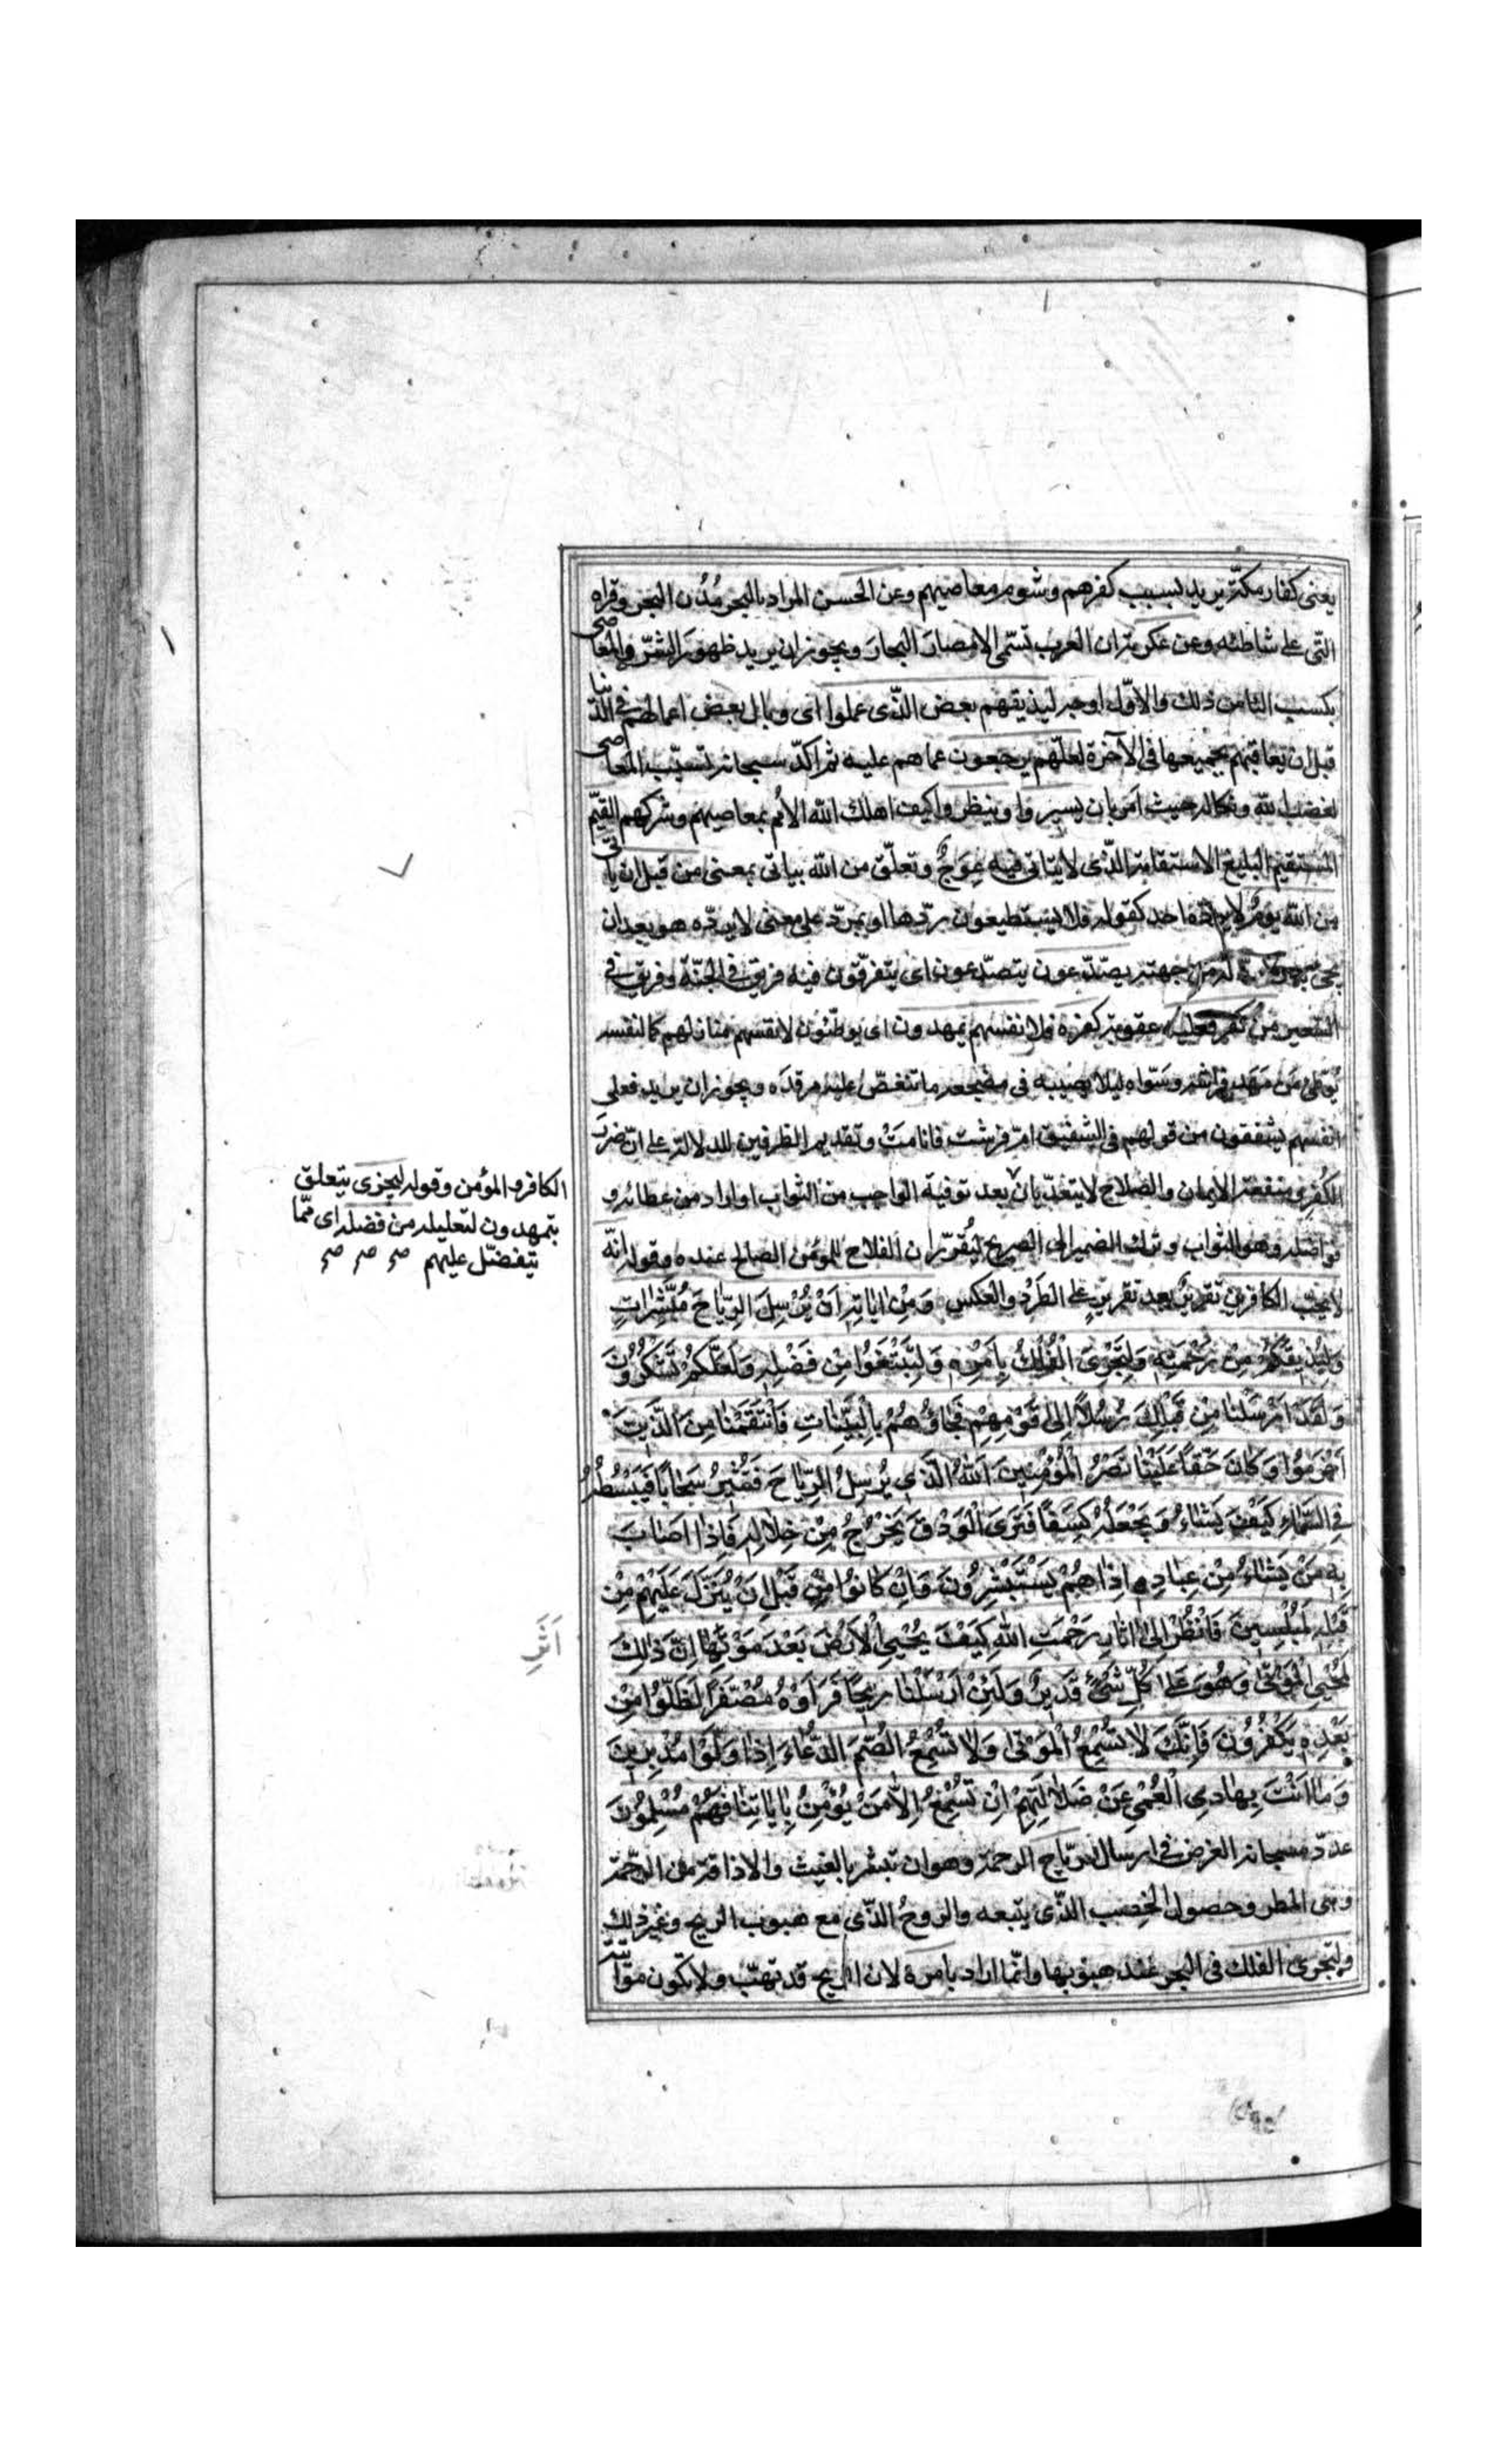 يعنى كفار مكّة يريد بسبب كفرهم وشوم معاصيهم وعن الحسن المراد بالبحر مُدُن البحر وقراه
التّى على شاطئه وعن عكرمة ان العرب تسمّى الامصار البحار ويجوز ان يريد ظهور الشرّ والمعاصى
بكسب الناس ذلك والاوّل اوجه ليذيقهم بعض الذّى عملوا اى وبال بعض اعمالهم فى الدّنيا
قبل ان يعاقبهم بجميعها فى الآخرة لعلّهم يرجعون عما هم عليه ثم اكدّ سبحانه تسبّب المعاصى
لغضب الله ونكاله حيث امر بان يسيروا وينظروا كيف اهلك الله الامم بمعاصيهم وشركهم القيّم
المستقيم البليغ الاستقامة الذّى لا يتاتى فيه عِوَجٌ وتعلّق من الله بياتى بمعنى من قبل ان ياتى
من الله يومٌ لا يردّه احد كقوله فلا يستطيعون ردّها او بمردّ على معنى لا يردّه هو بعد ان
يجئ به ولا ردّ له من جهته يصّدّعون يتصدّعون اى يتفرّقون فيه فريق فى الجنّة وفريق فى
السّعير من كفر فعليه عقوبة كفره فلانفسهم يمهدون اى يوطّئون لانفسهم منازلهم كما لنفسه
يُوطئ مَن مَهَد فراشه وسَوّاه ليلا يصيبه فى مضجعه ما تنغصّ عليه مرقدَه ويجوز ان يريد فعلى
انفسهم يشفقون من قولهم فى الشفيق امّ فرشت فانامَتْ وتقديم الظرفين للدلالة على انّ ضررَ
الكفر ومنفعة الايمان والصلاح لا يتعدّيان بعد توفية الواجب من الثواب او اراد من عطائه و
فواضله وهو الثواب وترك الضمير الى الصريح ليُقرّر ان الفلاح للمؤمن الصالح عنده وقوله انّه
لا يحبّ الكافرين تقريرٌ بعد تقريرٍ على الطَردِ والعكس وَمِنْ اٰيَاتِهِ اَنْ يُرْسِلَ الرِّيَاحَ مُبَشِّرَاتٍ
وَلِيُذِيقَكُمْ مِنْ رَحْمَتِهِ وَلِتَجْرِىَ الْفُلْكُ بِاَمْرِهِ وَلِتَبْتَغُوا مِنْ فَضْلِهِ وَلَعَلَّكُمْ تَشْكُرُونَ
وَلَقَدْ اَرْسَلْنَا مِنْ قَبْلِكَ رُسُلًا اِلٰى قَوْمِهِمْ فَجَاؤُهُمْ بِالْبَيِّنَاتِ فَانْتَقَمْنَا مِنَ الَّذِينَ
اَجْرَمُوا وَكَانَ حَقًّا عَلَيْنَا نَصْرُ الْمُؤْمِنِينَ اَللهُ الَّذِى يُرْسِلُ الرِّيَاحَ فَتُثِيرُ سَحَابًا فَيَبْسُطُهُ
فِى السَّمَاءِ كَيْفَ يَشَاءُ وَيَجْعَلُهُ كِسَفًا فَتَرَى الْوَدْقَ يَخْرُجُ مِنْ خِلَالِهِ فَاِذَا اَصَابَ
بِهِ مَنْ يَشَاءُ مِنْ عِبَادِهِ اِذَا هُمْ يَسْتَبْشِرُونَ وَاِنْ كَانُوا مِنْ قَبْلِ اَنْ يُنَزَّلَ عَلَيْهِمْ مِنْ
قَبْلِهِ لَمُبْلِسِينَ فَانْظُرْ اِلٰى اٰثَارِ رَحْمَتِ اللهِ كَيْفَ يُحْيِى الْاَرْضَ بَعْدَ مَوْتِهَا اِنَّ ذٰلِكَ
لَمُحْيِى الْمَوْتٰى وَهُوَ عَلٰى كُلِّ شَىْءٍ قَدِيرٌ وَلَئِنْ اَرْسَلْنَا رِيحًا فَرَاَوْهُ مُصْفَرًّا لَظَلُّوا مِنْ
بَعْدِهِ يَكْفُرُونَ فَاِنَّكَ لَا تُسْمِعُ الْمَوْتٰى وَلَا تُسْمِعُ الصُّمَّ الدُّعَاءَ اِذَا وَلَّوْا مُدْبِرِينَ
وَمَا اَنْتَ بِهَادِى الْعُمْىِ عَنْ ضَلَالَتِهِمْ اِنْ تُسْمِعُ اِلَّا مَنْ يُؤْمِنُ بِاٰيَاتِنَا فَهُمْ مُسْلِمُونَ
عدّد سبحانه الغرض فى ارسال رياح الرحمة وهو ان تبشر بالغيث والاذاقة من الرّحمة
وهى المطر وحصول الخصب الذّى يتبعه والروحُ الذّى مع هبوب الريح وغير ذلك
ولتجرى الفلك فى البحر عند هبوبها وانّما اراد بامره لان الريح قد تهبّ ولا تكون مؤاتيّة
الكافر والمؤمن وقوله ليجزى يتعلق
بتمهدون لتعليله من فضله اى ممّا
يتفضّل عليهم صح صح صح
اَثَرِ